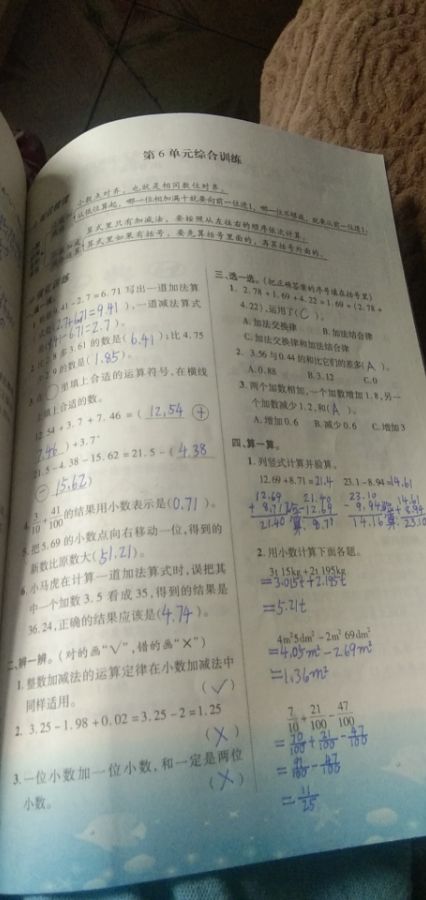 第6单元综合训练
小数点对齐,也就是相同数位对齐。
从低位算起,哪一位相加满十就要向前一位进1,哪一位不够减,就要从前一位退1
算式里只有加减法,要按照从左往右的顺序依次计算。
算式里如果有括号,要先算括号里面的,再算括号外面的。
9.41-2.7=6.71写出一道加法算
(2.7+6.71=9.41),一道减法算式
3.61的数是(6.41);比4.75
2.9的数是(1.85)。
里填上合适的运算符号,在横线
上填上合适的数。
12.54+3.7+7.46=(12.54 +
7.46)+3.7
21.5-4.38-15.62=21.5-(4.38
- 15.62)
4. 3/10+41/100的结果用小数表示是(0.71)。
5.把5.69的小数点向右移动一位,得到的
新数比原数大(51.21)。
6.小马虎在计算一道加法算式时,误把其
中一个加数3.5看成35,得到的结果是
36.24,正确的结果应该是(4.74)。
二、辨一辨。(对的画“√”,错的画“×”)
1.整数加减法的运算定律在小数加减法中
同样适用。(√)
2. 3.25-1.98+0.02=3.25-2=1.25
(×)
3.一位小数加一位小数,和一定是两位
小数。(×)
三、选一选。(把正确答案的序号填在括号里)
1. 2.78+1.69+4.22=1.69+(2.78+
4.22),运用了(C)。
A.加法交换律 B.加法结合律
C.加法交换律和加法结合律
2. 3.56与0.44的和比它们的差多(A)。
A.0.88 B.3.12 C.0
3.两个加数相加,一个加数增加1.8,另一
个加数减少1.2,和(A)。
A.增加0.6 B.减少0.6 C.增加3
四、算一算。
1.列竖式计算并验算。
12.69+8.71=21.4 23.1-8.94=14.61
12.69 21.40 23.10 14.61
+ 8.71 -12.69 - 8.94 + 8.94
21.40 8.71 14.16 23.10
2.用小数计算下面各题。
3t 15kg+2t 195kg
=3.015t+2.195t
=5.21t
4m²5dm²-2m²69dm²
=4.05m²-2.69m²
=1.36m²
7/10+21/100-47/100
=70/100+21/100-47/100
=91/100-47/100
=11/25